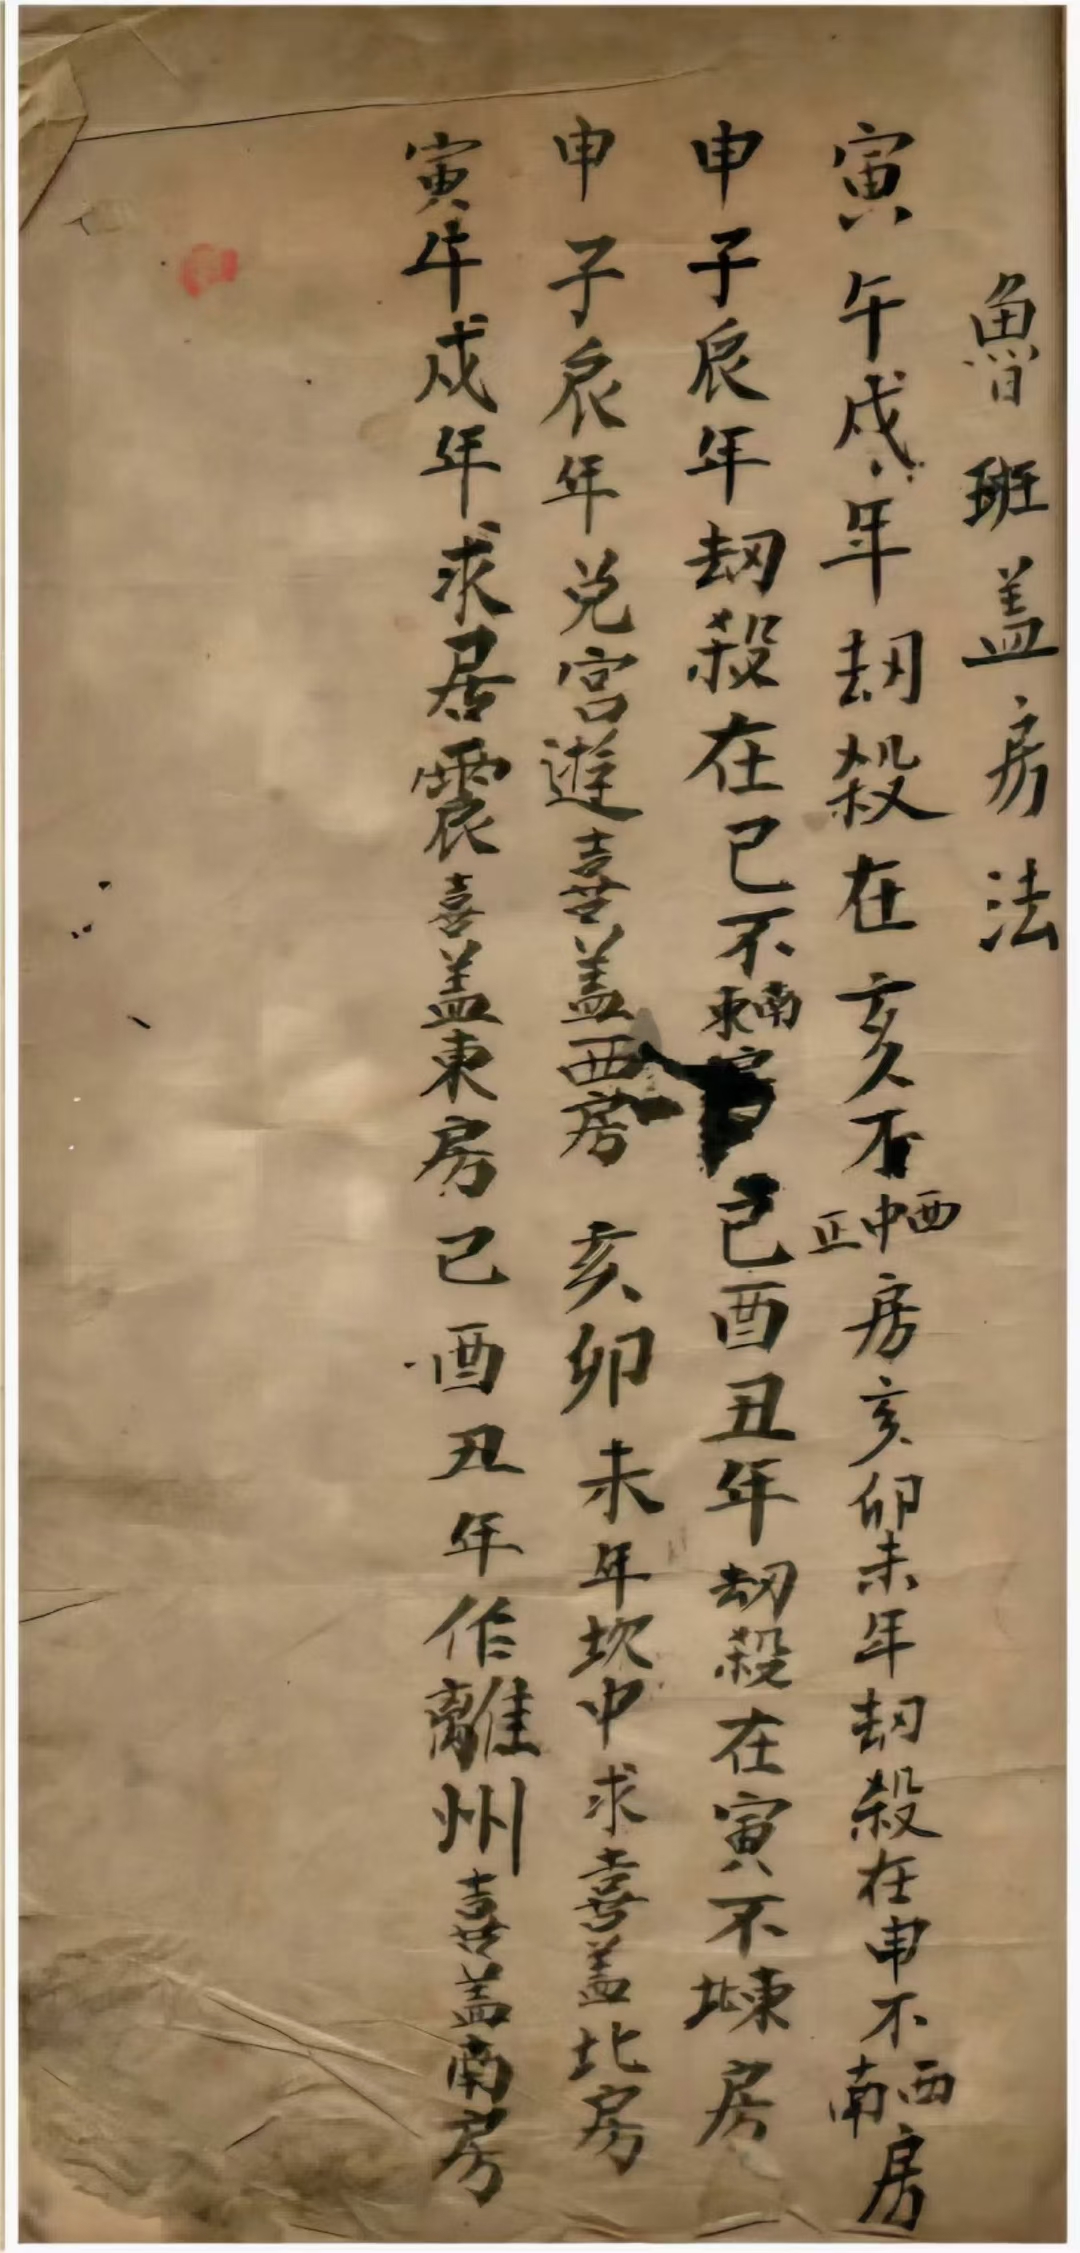 魯班盖房法
寅午戌年刼殺在亥不西中正房亥卯未年刼殺在申不西南房
申子辰年刼殺在巳不南東房巳酉丑年刼殺在寅不東北房
申子辰年兑宫遊喜盖西房 亥卯未年坎中求喜盖北房
寅午戌年求居震喜盖東房巳酉丑年作離州喜盖南房